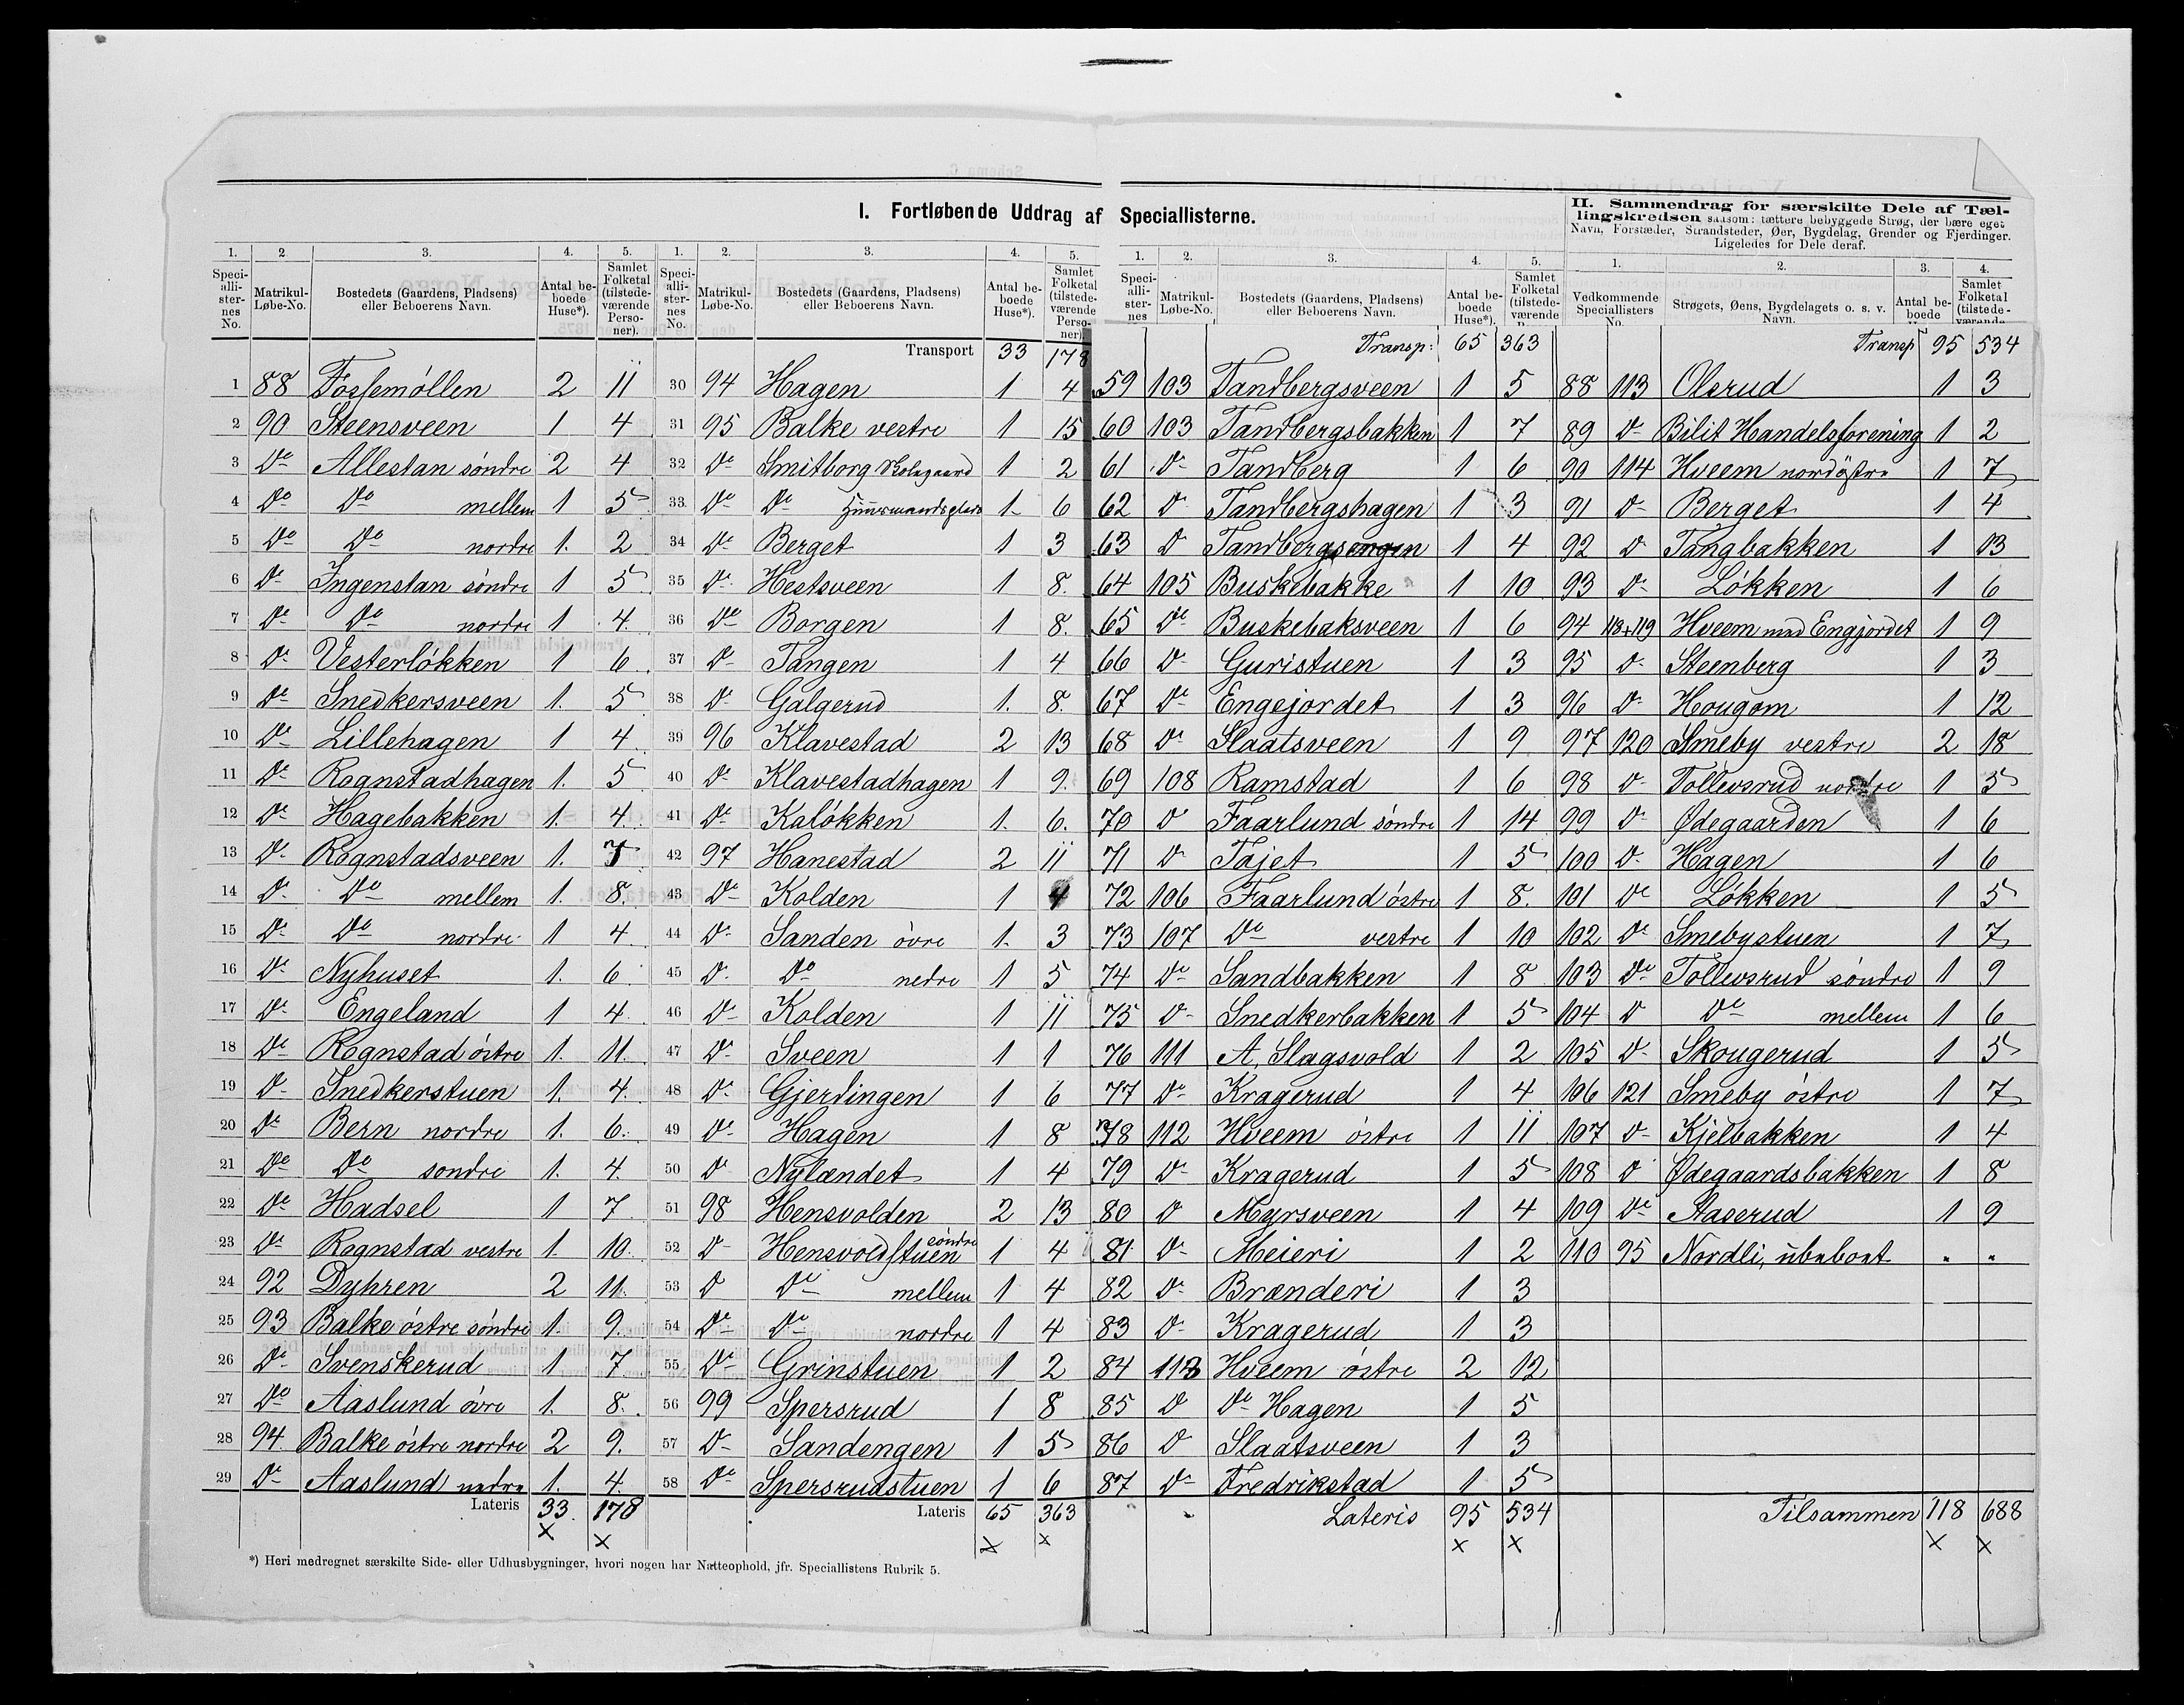 I. Fortløbende Uddrag af Speciallisterne.
1. 2 3. 4. 5.
Speci-alli-ster-nes No. Matrikul-Løbe-No. Bostedets (Gaardens, Pladsens) eller Beboerens Navn. Antal be-boede Huse*). Samlet Folketal (tilstede-værende Perso-ner).
1 88 Fossemøllen 2 11
2 90 Steensveen 1 4
3 Do Allestan søndre 2 4
4 Do Do mellem 1 5
5 Do Do nordre 1. 2
6 Do Ingenstan søndre 1 5
7 Do Do nordre 1 4.
8 Do Vesterløkken 1 6
9 Do Snedkersveen 1. 5
10 Do Lillehagen 1 4
11 Do Rognstadhagen 1. 5
12 Do Hagebakken 1. 4
13 Do Rognstadsveen 1. 7
14 Do Do mellem 1. 8.
15 Do Do nordre 1 4
16 Do Nyhuset 1. 6
17 Do Engeland 1 4
18 Do Rognstad østre 1. 11.
19 Do Snedkerstuen 1. 4.
20 Do Bern nordre 1. 6.
21 Do Do sondre 1. 4.
22 Do Hadsel 1 7
23 Do Rognstad vestre 1. 10
24 92 Dyhren 2 11.
25 93 Balke østre søndre 1. 9.
26 Do Svenskerud 1 7
27 Do Aaslund øvre 1. 8.
28 94. Balke østre nordre 2 9.
29 Do Aaslund nedre 1. 4.
Lateris 33. 178
x x
1. 2. 3. 4. 5.
Speci-alli-ster-nes No. Matrikul-Løbe-No. Bostedets (Gaardens, Pladsens) eller Beboerens Navn. Antal be-boede Huse*). Samlet Folketal (tilstede-værende Perso-ner).
Transport 33 178
30 94 Hagen 1 4
31 95 Balke vestre 1 15
32 Do Smitborg Skolegaard 1 2
33 Do Do Huusmandsplads 1 6
34 Do Berget 1 3
35 Do Hestsveen 1 8.
36 Do Borgen 1 8.
37 Do Tangen 1 4
38 Do Galgerud 1. 8.
39 96 Klavestad 2 13
40 Do Klavestadhagen 1 9.
41 Do Kaløkken 1. 6.
42 97 Hanestad 2 11
43 Do Kolden 1 4
44 Do Sanden øvre 1. 3
45 Do Do nedre 1 5
46 Do Kolden 1 11
47 Do Sveen 1 1
48 Do Gjerdingen 1 6
49 Do Hagen 1 8
50 Do Nylændet 1 4
51 98 Hensvolden 2 13
52 Do Hensvoldstuen søndre 1 4
53 Do Do mellem 1 4
54 Do Do nordre 1 4
55 Do Grinstuen 1 2
56 99 Spersrud 1 8
57 Do Sandengen 1 5
58 Do Spersrudstuen 1 6
Lateris 65 363
x x
1. 2. 3. 4. 5.
Speci-alli-ster-nes Matrikul-Løbe-No. Bostedets (Gaardens, Pladsens) eller Beboerens Navn. Antal be-boede Huse*). Samlet Folketal (tilstede-værende
Transp: 65 363
59 103 Tandbergsveen 1 5
60 103 Tandbergsbakken 1 7
61 Do Tandberg 1 6
62 Do Tandbergshagen 1 3
63 Do Tandbergsengen 1 4
64 105 Buskebakke 1 10
65 Do Buskebaksveen 1 6
66 Do Guristuen 1 3
67 Do Engejordet 1 3
68 Do Slaatsveen 1 9
69 108 Ramstad 1 6
70 Do Faarlund søndre 1 14
71 Do Tajet 1 5
72 106 Faarlund østre 1 8.
73 107 Do vestre 1 10
74 Do Sandbakken 1 8
75 Do Snedkerbakken 1 5
76 111 A. Slagsvold 1 2
77 Do Kragerud 1 4
78 112 Hveem østre 1 11
79 Do Kragerud 1 5
80 Do Myrsveen 1 4
81 Do Meieri 1 2
82 Do Brænderi 1 3
83 Do Kragerud 1 3
84 113 Hveem østre 2 12
85 Do Do Hagen 1 5
86 Do Slaatsveen 1 3
87 Do Fredrikstad 1 5
Lateris 95 534
x x
II. Sammendrag for særskilte Dele af Tæl-
lingskredsen saasom: tættere bebyggede Strøg, der bære eget
Navn, Forstæder, Strandsteder, Øer, Bygdelag, Grender og Fjerdinger.
Ligeledes for Dele deraf.
1. 2. 3. 4.
Vedkommende Speciallisters No. Strøgets, Øens, Bygdelagets o. s. v. Navn. Antal be-boede Samlet Folketal (tilstede-værende
Transp 95 534
88 113 Olsrud 1 3
89 Do Bilit Handelsforening 1 2
90 114 Hveem nordøstre 1 7
91 Do Berget 1 4
92 Do Tangbakken 1 13
93 Do Løkken 1 6
94 118+119 Hveem med Engjordet 1 9
95 Do Steenberg 1 3
96 Do Hougom 1 12
97 120 Smeby vestre 2 18
98 Do Tollevsrud nordre 1 5
99 Do Ødegaarden 1 6
100 Do Hagen 1 6
101 Do Løkken 1 5
102 Do Smebystuen 1 7
103 Do Tollevsrud søndre 1 9
104 Do Do mellem 1 6
105 Do Skougerud 1 5
106 121 Smeby østre 1 7
107 Do Kjelbakken 1 4
108 Do Ødegaardsbakken 1 8
109 Do Staserud 1 9
110 95 Nordli, ubeboet " "
Tilsammen 118 688
x x
*) Heri medregnet særskilte Side- eller Udhusbygninger, hvori nogen har Natteophold, jfr. Speciallistens Rubrik 5.